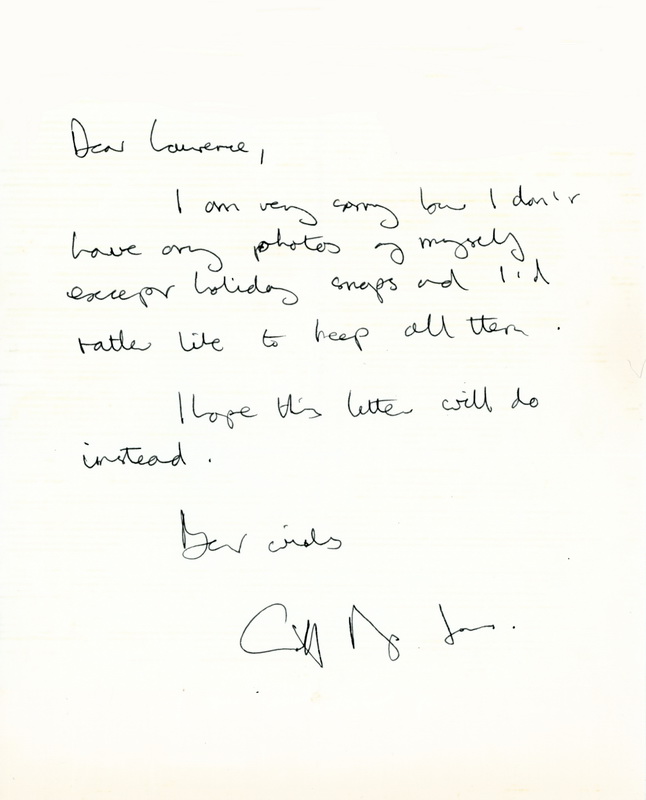 Dear Laurence,
I am very sorry but I don't
have any photos of myself
except holiday snaps and I'd
rather like to keep all them.
I hope this letter will do
instead.
Best wishes
Griff Rhys Jones.